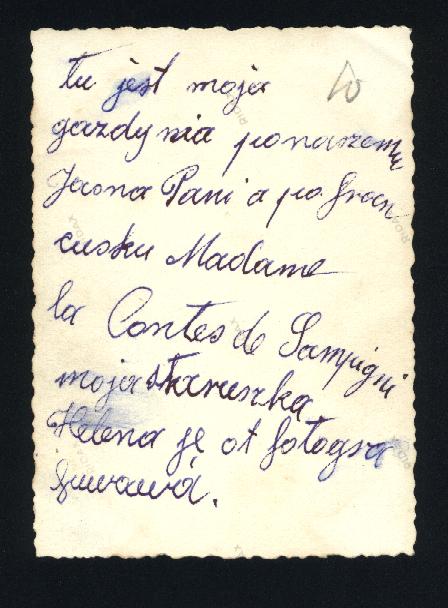 tu jest moja 10
gazdynia ponaszemu
Jasna Pani a po fran
cusku Madame
la Contes de Sampigni
moja staruszka
Helena je ot fotogra